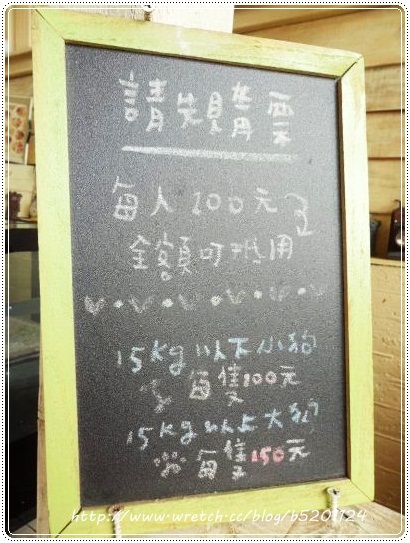 請先購票
每人200元
金額可抵用
15kg以下小狗
每隻100元
15kg以上大狗
每隻150元
http://www.wretch.cc/blog/b5201124